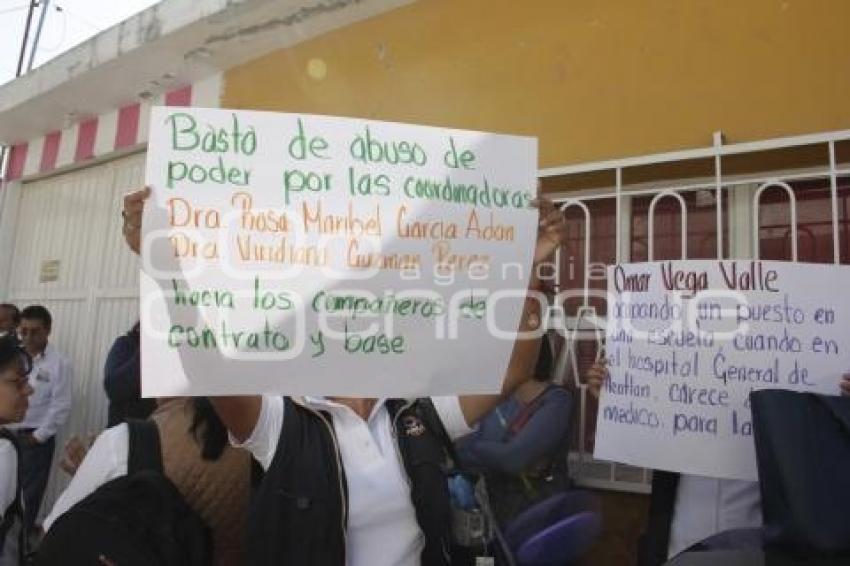 Basta de abuso de
poder por las coordinadoras
Dra Rosa Maribel Garcia Adan
Dra Viridiana Guzman Perez
hacia los compañeros de
contrato y base
Omar Vega Valle
ocupando un puesto en
una escuela cuando en
el hospital General de
carece
medico, para la
agencia
enfoque